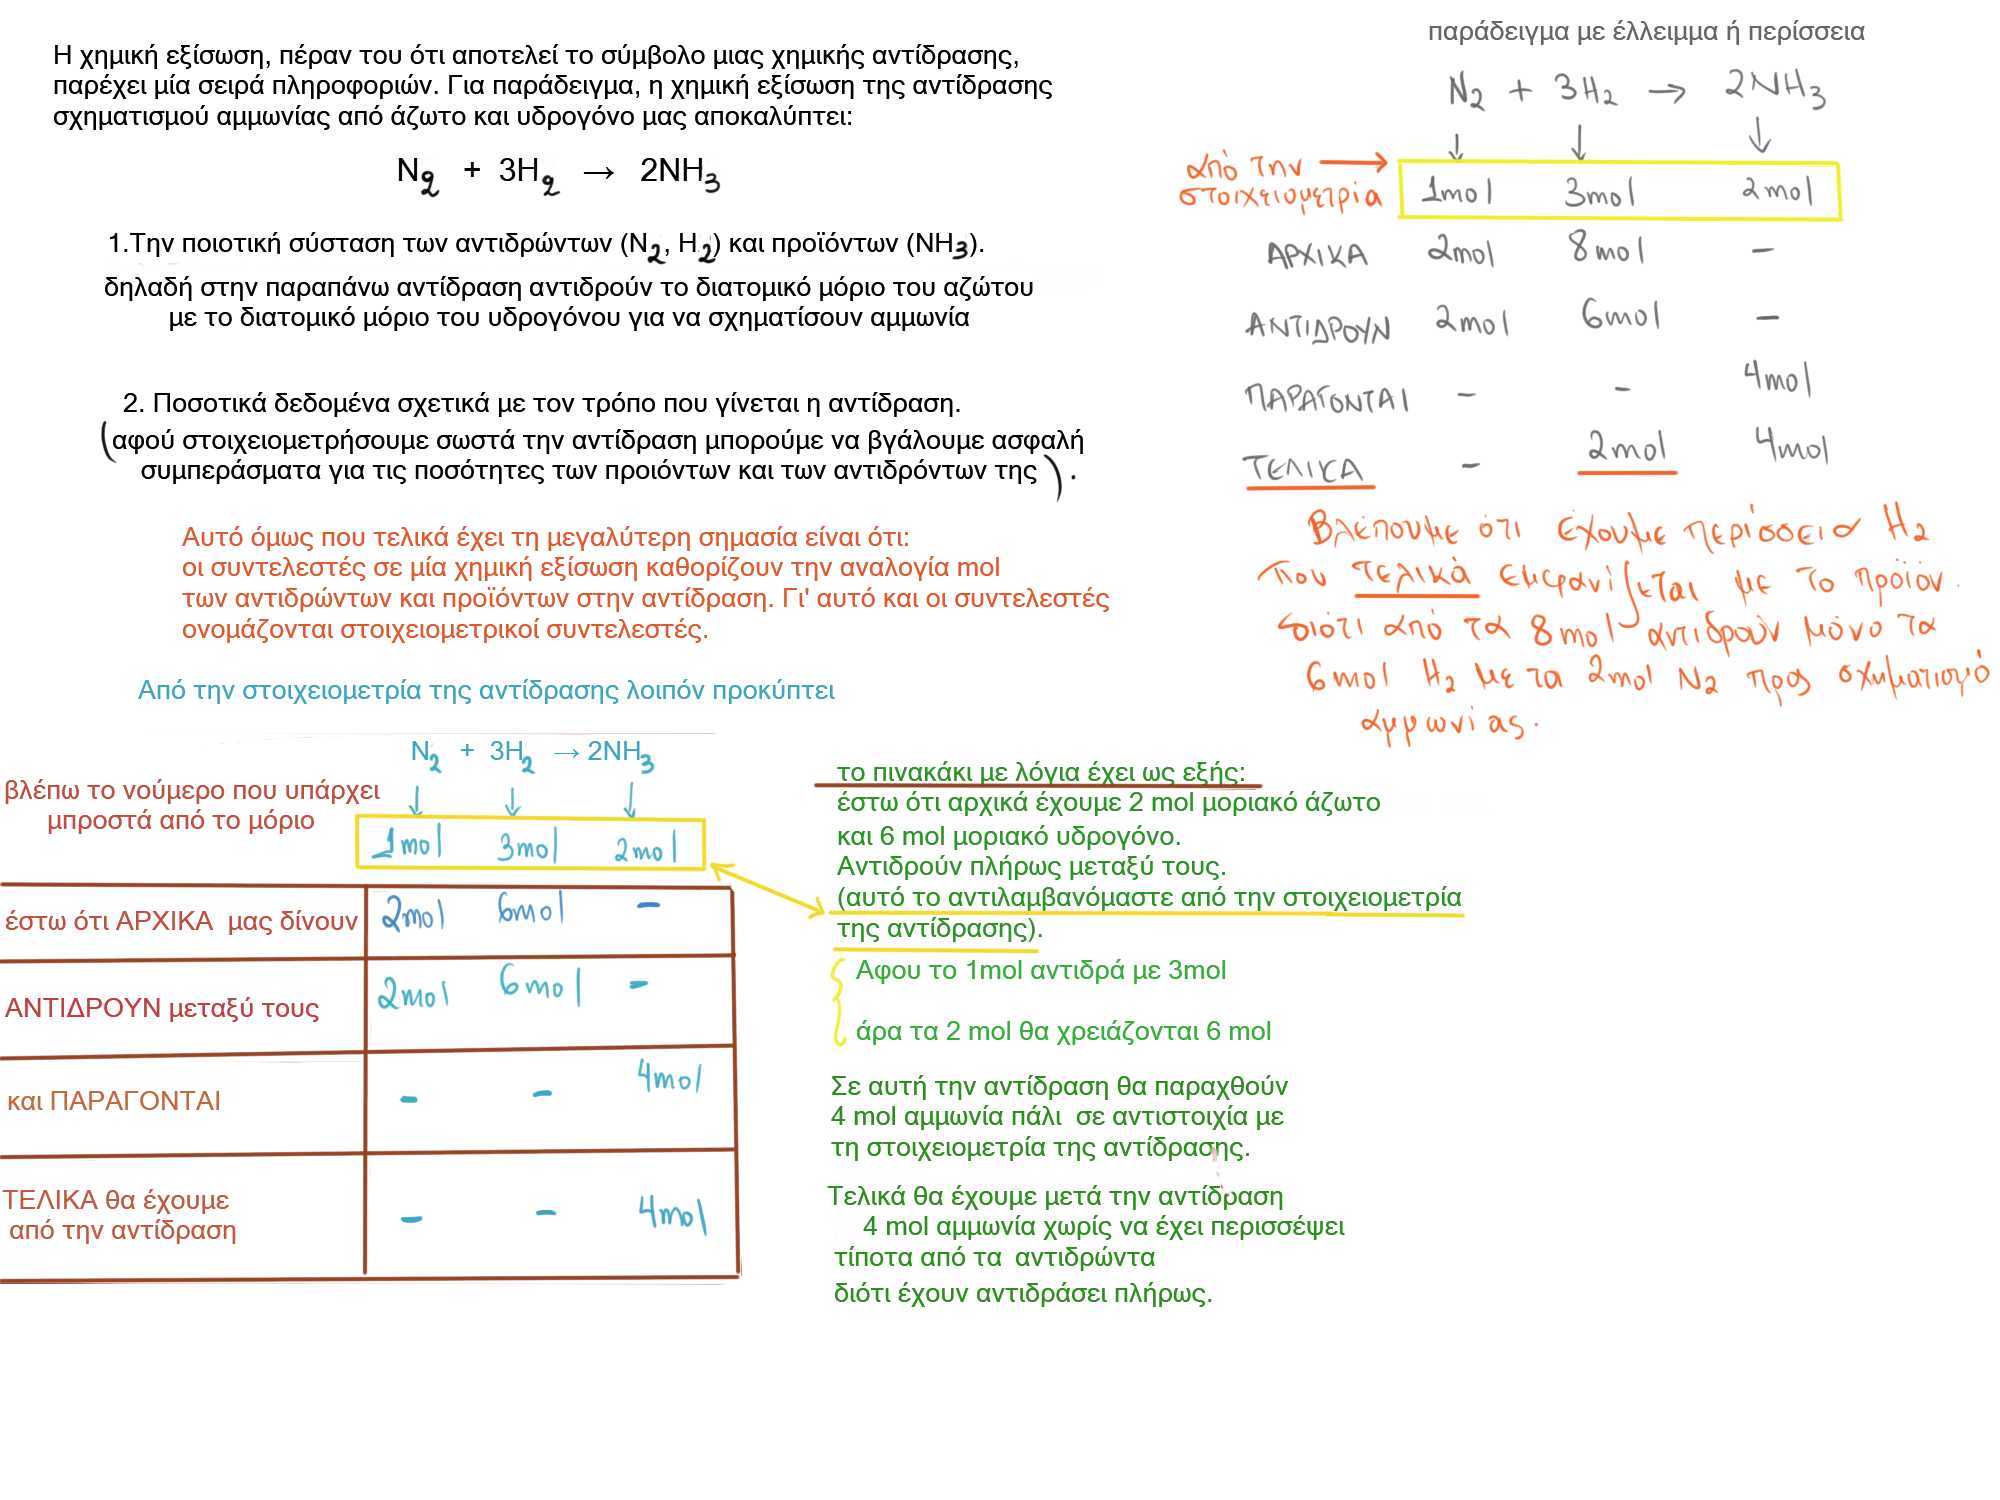 Η χημική εξίσωση, πέραν του ότι αποτελεί το σύμβολο μιας χημικής αντίδρασης,
παρέχει μία σειρά πληροφοριών. Για παράδειγμα, η χημική εξίσωση της αντίδρασης
σχηματισμού αμμωνίας από άζωτο και υδρογόνο μας αποκαλύπτει:
N2 + 3H2 → 2NH3
1.Την ποιοτική σύσταση των αντιδρώντων (N2, H2) και προϊόντων (NH3).
δηλαδή στην παραπάνω αντίδραση αντιδρούν το διατομικό μόριο του αζώτου
με το διατομικό μόριο του υδρογόνου για να σχηματίσουν αμμωνία
2. Ποσοτικά δεδομένα σχετικά με τον τρόπο που γίνεται η αντίδραση.
(αφού στοιχειομετρήσουμε σωστά την αντίδραση μπορούμε να βγάλουμε ασφαλή
συμπεράσματα για τις ποσότητες των προιόντων και των αντιδρόντων της ).
Αυτό όμως που τελικά έχει τη μεγαλύτερη σημασία είναι ότι:
οι συντελεστές σε μία χημική εξίσωση καθορίζουν την αναλογία mol
των αντιδρώντων και προϊόντων στην αντίδραση. Γι' αυτό και οι συντελεστές
ονομάζονται στοιχειομετρικοί συντελεστές.
Από την στοιχειομετρία της αντίδρασης λοιπόν προκύπτει
N2 + 3H2 → 2NH3
βλέπω το νούμερο που υπάρχει
μπροστά από το μόριο
1mol 3mol 2mol
έστω ότι ΑΡΧΙΚΑ μας δίνουν 2mol 6mol -
ΑΝΤΙΔΡΟΥΝ μεταξύ τους 2mol 6mol -
και ΠΑΡΑΓΟΝΤΑΙ - - 4mol
ΤΕΛΙΚΑ θα έχουμε
από την αντίδραση - - 4mol
το πινακάκι με λόγια έχει ως εξής:
έστω ότι αρχικά έχουμε 2 mol μοριακό άζωτο
και 6 mol μοριακό υδρογόνο.
Αντιδρούν πλήρως μεταξύ τους.
(αυτό το αντιλαμβανόμαστε από την στοιχειομετρία
της αντίδρασης).
Αφου το 1mol αντιδρά με 3mol
άρα τα 2 mol θα χρειάζονται 6 mol
Σε αυτή την αντίδραση θα παραχθούν
4 mol αμμωνία πάλι σε αντιστοιχία με
τη στοιχειομετρία της αντίδρασης.
Τελικά θα έχουμε μετά την αντίδραση
4 mol αμμωνία χωρίς να έχει περισσέψει
τίποτα από τα αντιδρώντα
διότι έχουν αντιδράσει πλήρως.
παράδειγμα με έλλειμμα ή περίσσεια
N2 + 3H2 → 2NH3
από την →
στοιχειομετρία
1mol 3mol 2mol
ΑΡΧΙΚΑ 2mol 8mol -
ΑΝΤΙΔΡΟΥΝ 2mol 6mol -
ΠΑΡΑΓΟΝΤΑΙ - - 4mol
ΤΕΛΙΚΑ - 2mol 4mol
Βλέπουμε ότι έχουμε περίσσεια H2
που τελικά εμφανίζεται με το προϊόν.
διότι από τα 8mol αντιδρούν μόνο τα
6mol H2 με τα 2mol N2 προς σχηματισμό
αμμωνίας.